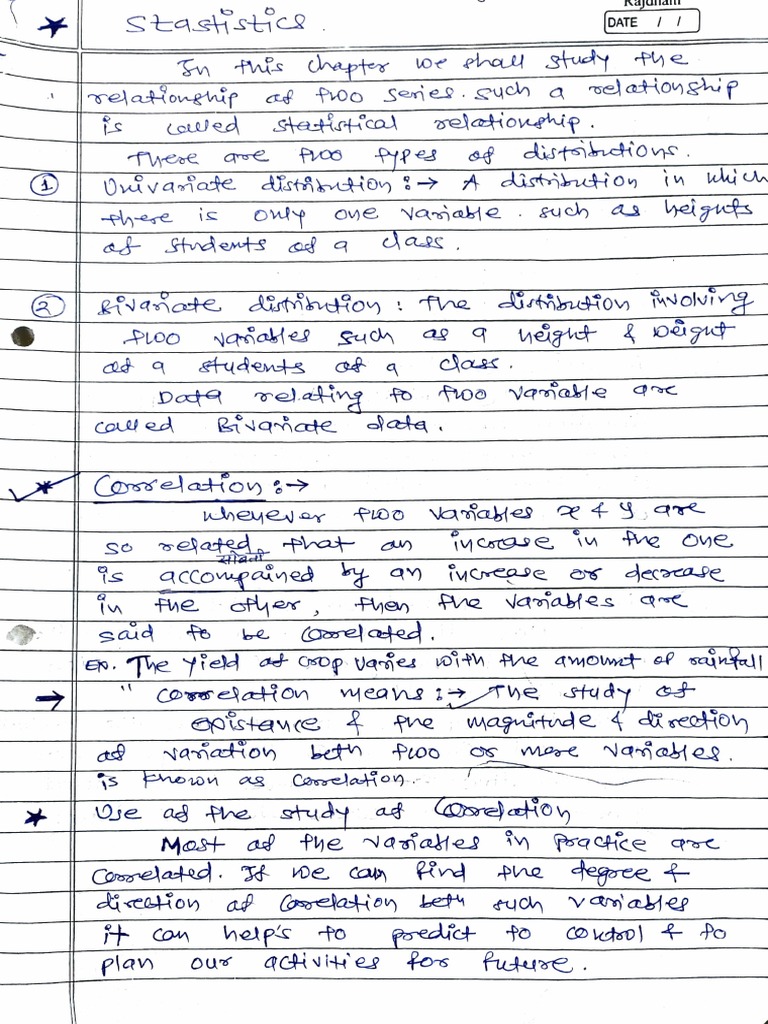 Rajdhani
DATE / /
Stastistics.
In this chapter we shall study the
relationship of two series. such a relationship
is called statistical relationship.
There are two types of distributions.
① Univariate distribution :→ A distribution in which
there is only one variable. such as heights
of students of a class.
② Bivariate distribution : The distribution involving
two variables such as a height & weight
of a students of a class.
Data relating to two variable are
called Bivariate data.
Correlation :→
whenever two variables x & y, are
so related that an increase in the one
is accompained by an increase or decrease
in the other, then the variables are
said to be correlated.
Ex. The yield of crop varies with the amount of rainfall
→ " correlation means :→ The study of
existance & the magnitude & direction
of variation beth two or more variables.
is known as correlation.
Use of the study of Correlation
Most of the variables in practice are
correlated. If we can find the degree &
direction of correlation beth such variables
it can help's to predict to control & to
plan our activities for future.